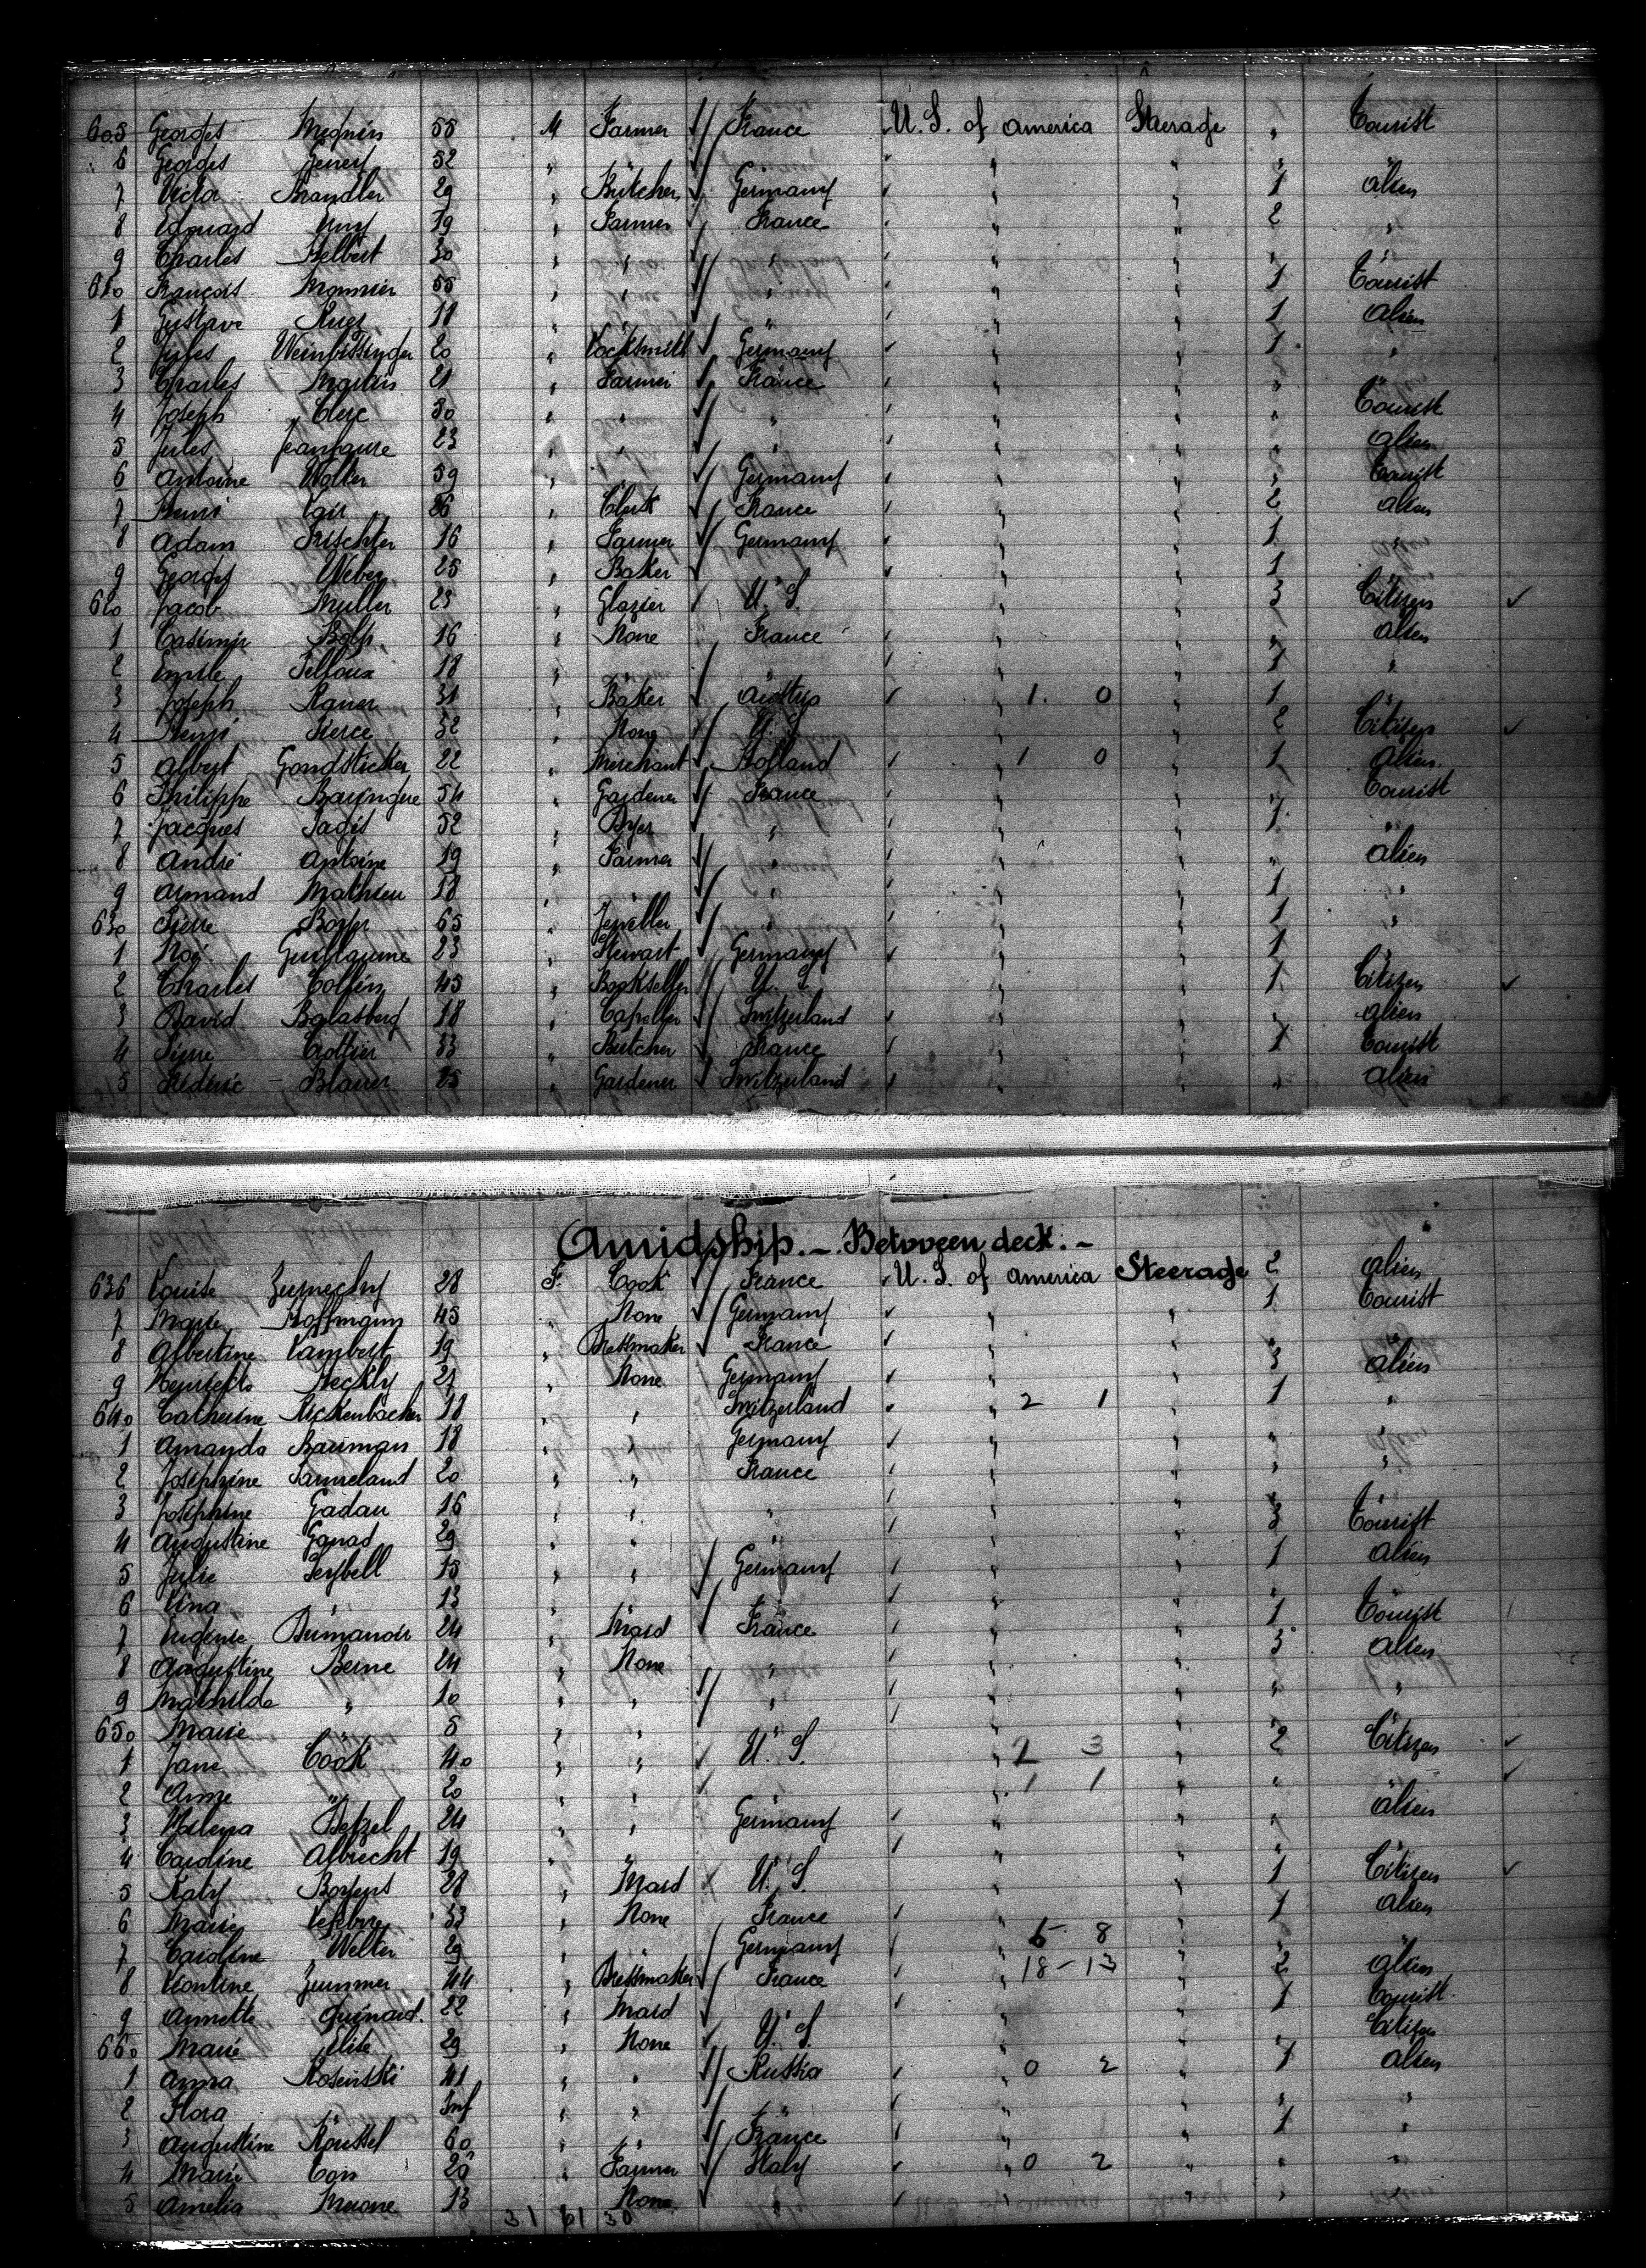 605 Georges Megnin 55 M Farmer France U. S. of America Steerage " Tourist
6 Georges 52 " " " " " "
7 Victor Brandler 29 " Butcher Germany " " 1 Alien
8 Edouard 19 " Farmer France " " 2 "
9 Charles Helbert 30 " " " " " "
610 François Monnin 55 " " " " " 1 Tourist
1 Gustave 18 " " " " " 1 Alien
2 Jules Weinbissinger 20 " Locksmith Germany " " 1 "
3 Charles Martin 21 " Farmer France " " " "
4 Joseph Clerc 30 " " " " " " Tourist
5 Jules Jeanfavre 23 " " " " " " Alien
6 Antoine Wolter 59 " " Germany " " " Tourist
7 Henri 26 " Clerk France " " 2 Alien
8 Adam 16 " Farmer Germany " " 1 "
9 Georges Weber 25 " Baker " " " 1 "
620 Jacob Muller 23 " Glazier U. S. " " 3 Citizen
1 Casimir 16 " None France " " " Alien
2 Emile Pelloux 18 " " " " " 1 "
3 Joseph Raner 31 " Baker Austria " 1 0 " 1 "
4 Henri Pierce 52 " None U. S. " " 2 Citizen
5 Albert Goudsticker 22 " Merchant Holland " 1 0 " 1 Alien
6 Philippe Baringere 54 " Gardener France " " " Tourist
7 Jacques Pages 52 " Dyer " " " 1 "
8 André Antoine 19 " Farmer " " " " Alien
9 Armand Mathieu 18 " " " " " 1 "
630 Pierre 65 " Jeweller " " " 1 "
1 Noé Guillaume 23 " Stewart Germany " " 1 "
2 Charles Collin 45 " Bookseller U. S. " " 1 Citizen
3 David 18 " Switzerland " " " Alien
4 Pierre Crottier 33 " Butcher France " " 1 Tourist
5 Fréderic Blaner 25 " Gardener Switzerland " " " Alien
Amidship. - Between deck. -
636 Louise 28 F. Cook France U. S. of America Steerage 2 Alien
7 Marie Hoffmann 45 " None Germany " " 1 Tourist
8 Albertine Lambert 19 " Dressmaker France " " " "
9 Henriette Heckly 27 " None Germany " " 3 Alien
640 Catherine Rickenbacher 18 " " Switzerland " 2 1 " 1 "
1 Amanda Bauman 18 " " Germany " " " "
2 Josephine 20 " " France " " " "
3 Josephine Gadau 16 " " " " " "
4 Augustine 29 " " " " " 3 Tourist
5 Julie Seybell 15 " " Germany " " 1 Alien
6 Lina " 13 " " " " " "
7 Eugénie Dumanoir 24 " Maid France " " 1 Tourist
8 Augustine Berne 24 " None " " " 3 Alien
9 Mathilde " 10 " " " " " " "
650 Marie " 5 " " " " " "
1 Jane Cook 40 " " U. S. " 2 3 " 2 Citizen
2 Anne " 20 " " " " 1 1 " " "
3 Helena Detzel 24 " " Germany " " " Alien
4 Caroline Albrecht 19 " " " " " "
5 Katy 28 " Maid U. S. " " 1 Citizen
6 Marie Lefebvre 33 " None France " " 1 Alien
7 Caroline Welter 29 " " Germany " 5 - 8 " " "
8 Léontine Zummer 44 " Dressmaker France " 18 - 13 " 2 Alien
9 Annette Guinard. 22 " Maid " " " 1 Tourist
660 Marie Elise 29 " None U. S. " " " Citizen
1 Anna Rosenski 41 " " Russia " 0 2 " 1 Alien
2 Flora " Inf " " " " " " "
3 Augustine Roussel 60 " " France " " 1 "
4 Marie 20 " Farmer Italy " 0 2 " " "
5 Amelia 13 " None " " " "
31 61 30